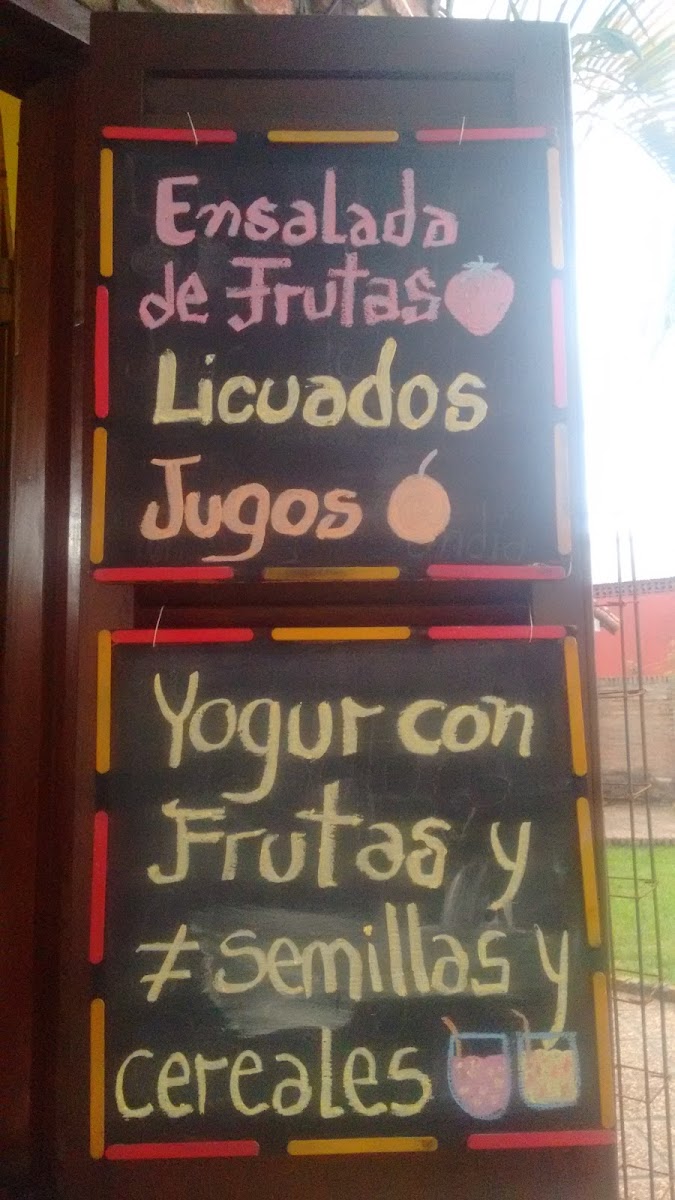 Ensalada
de Frutas
Licuados
Jugos
Yogur con
Frutas y
≠ semillas y
cereales